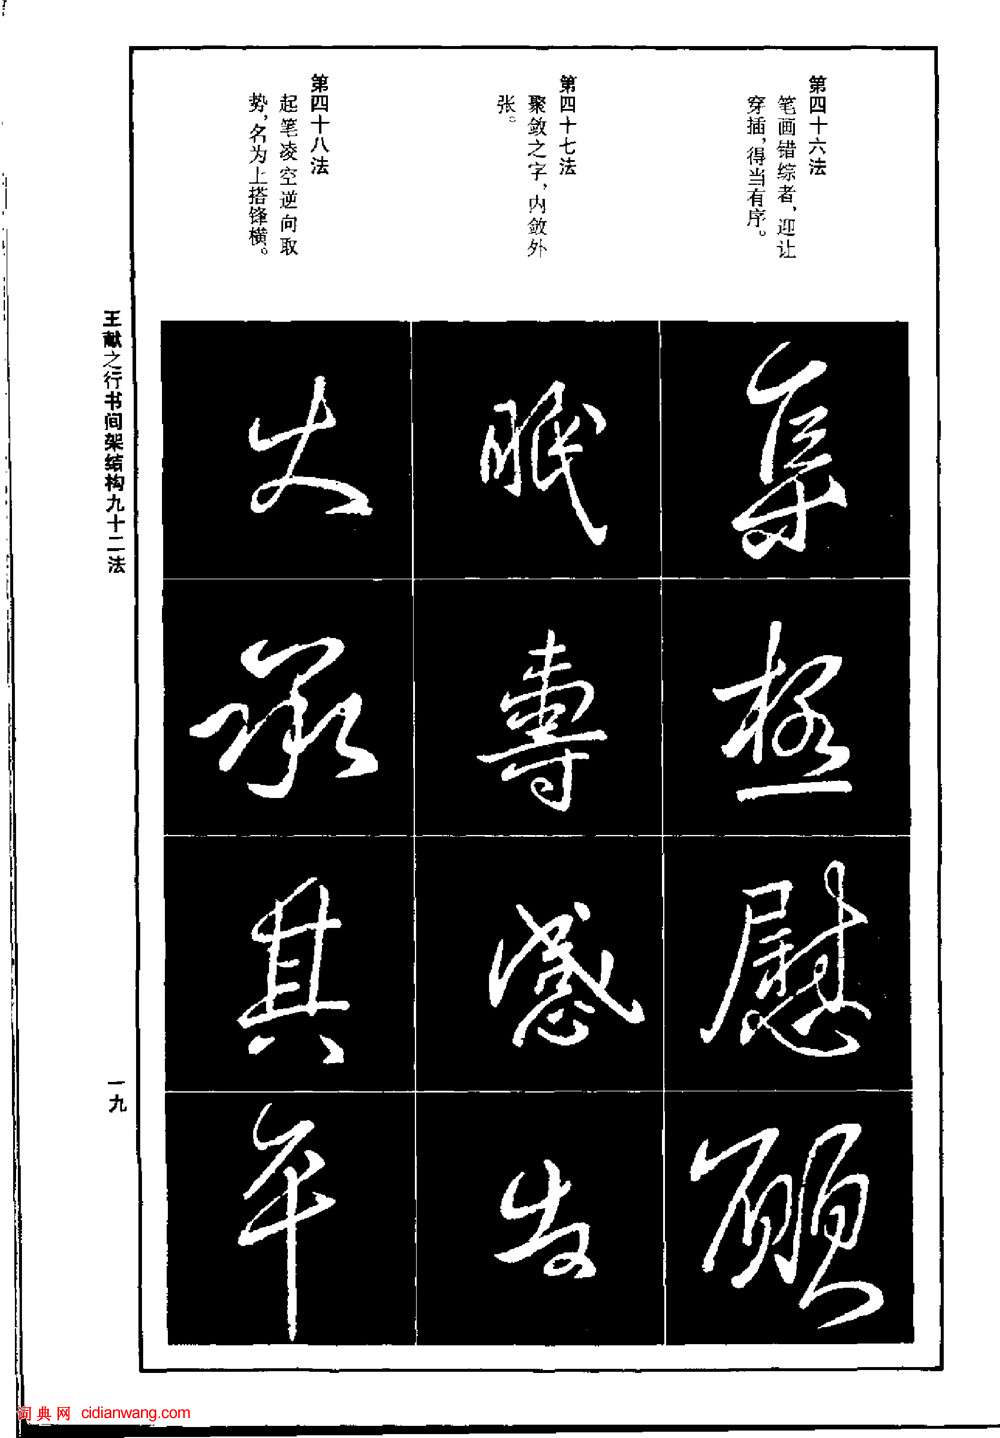 第四十六法
笔画错综者，迎让
穿插，得当有序。
第四十七法
聚敛之字，内敛外
张。
第四十八法
起笔凌空逆向取
势，名为上搭锋横。
集
极
慰
愿
眠
専
感
告
大
承
其
年
王献之行书间架结构九十二法
一九
词典网 cidianwang.com